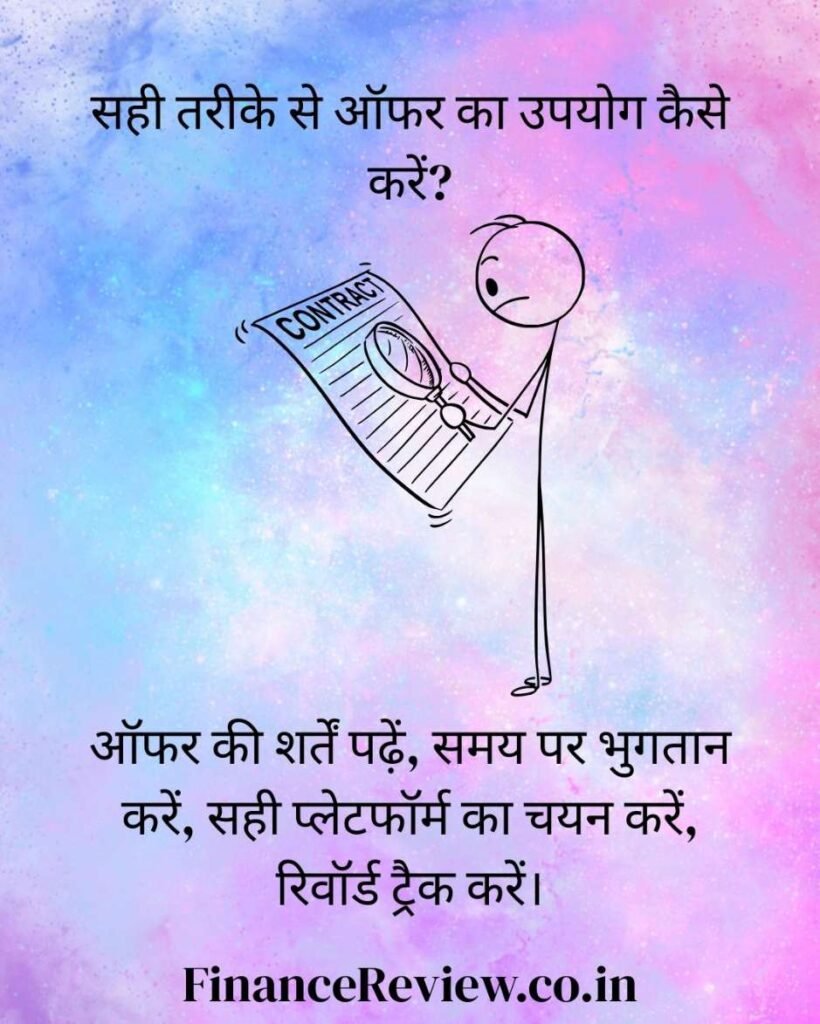 सही तरीके से ऑफर का उपयोग कैसे
करें?
CONTRACT
ऑफर की शर्तें पढ़ें, समय पर भुगतान
करें, सही प्लेटफॉर्म का चयन करें,
रिवॉर्ड ट्रैक करें।
FinanceReview.co.in